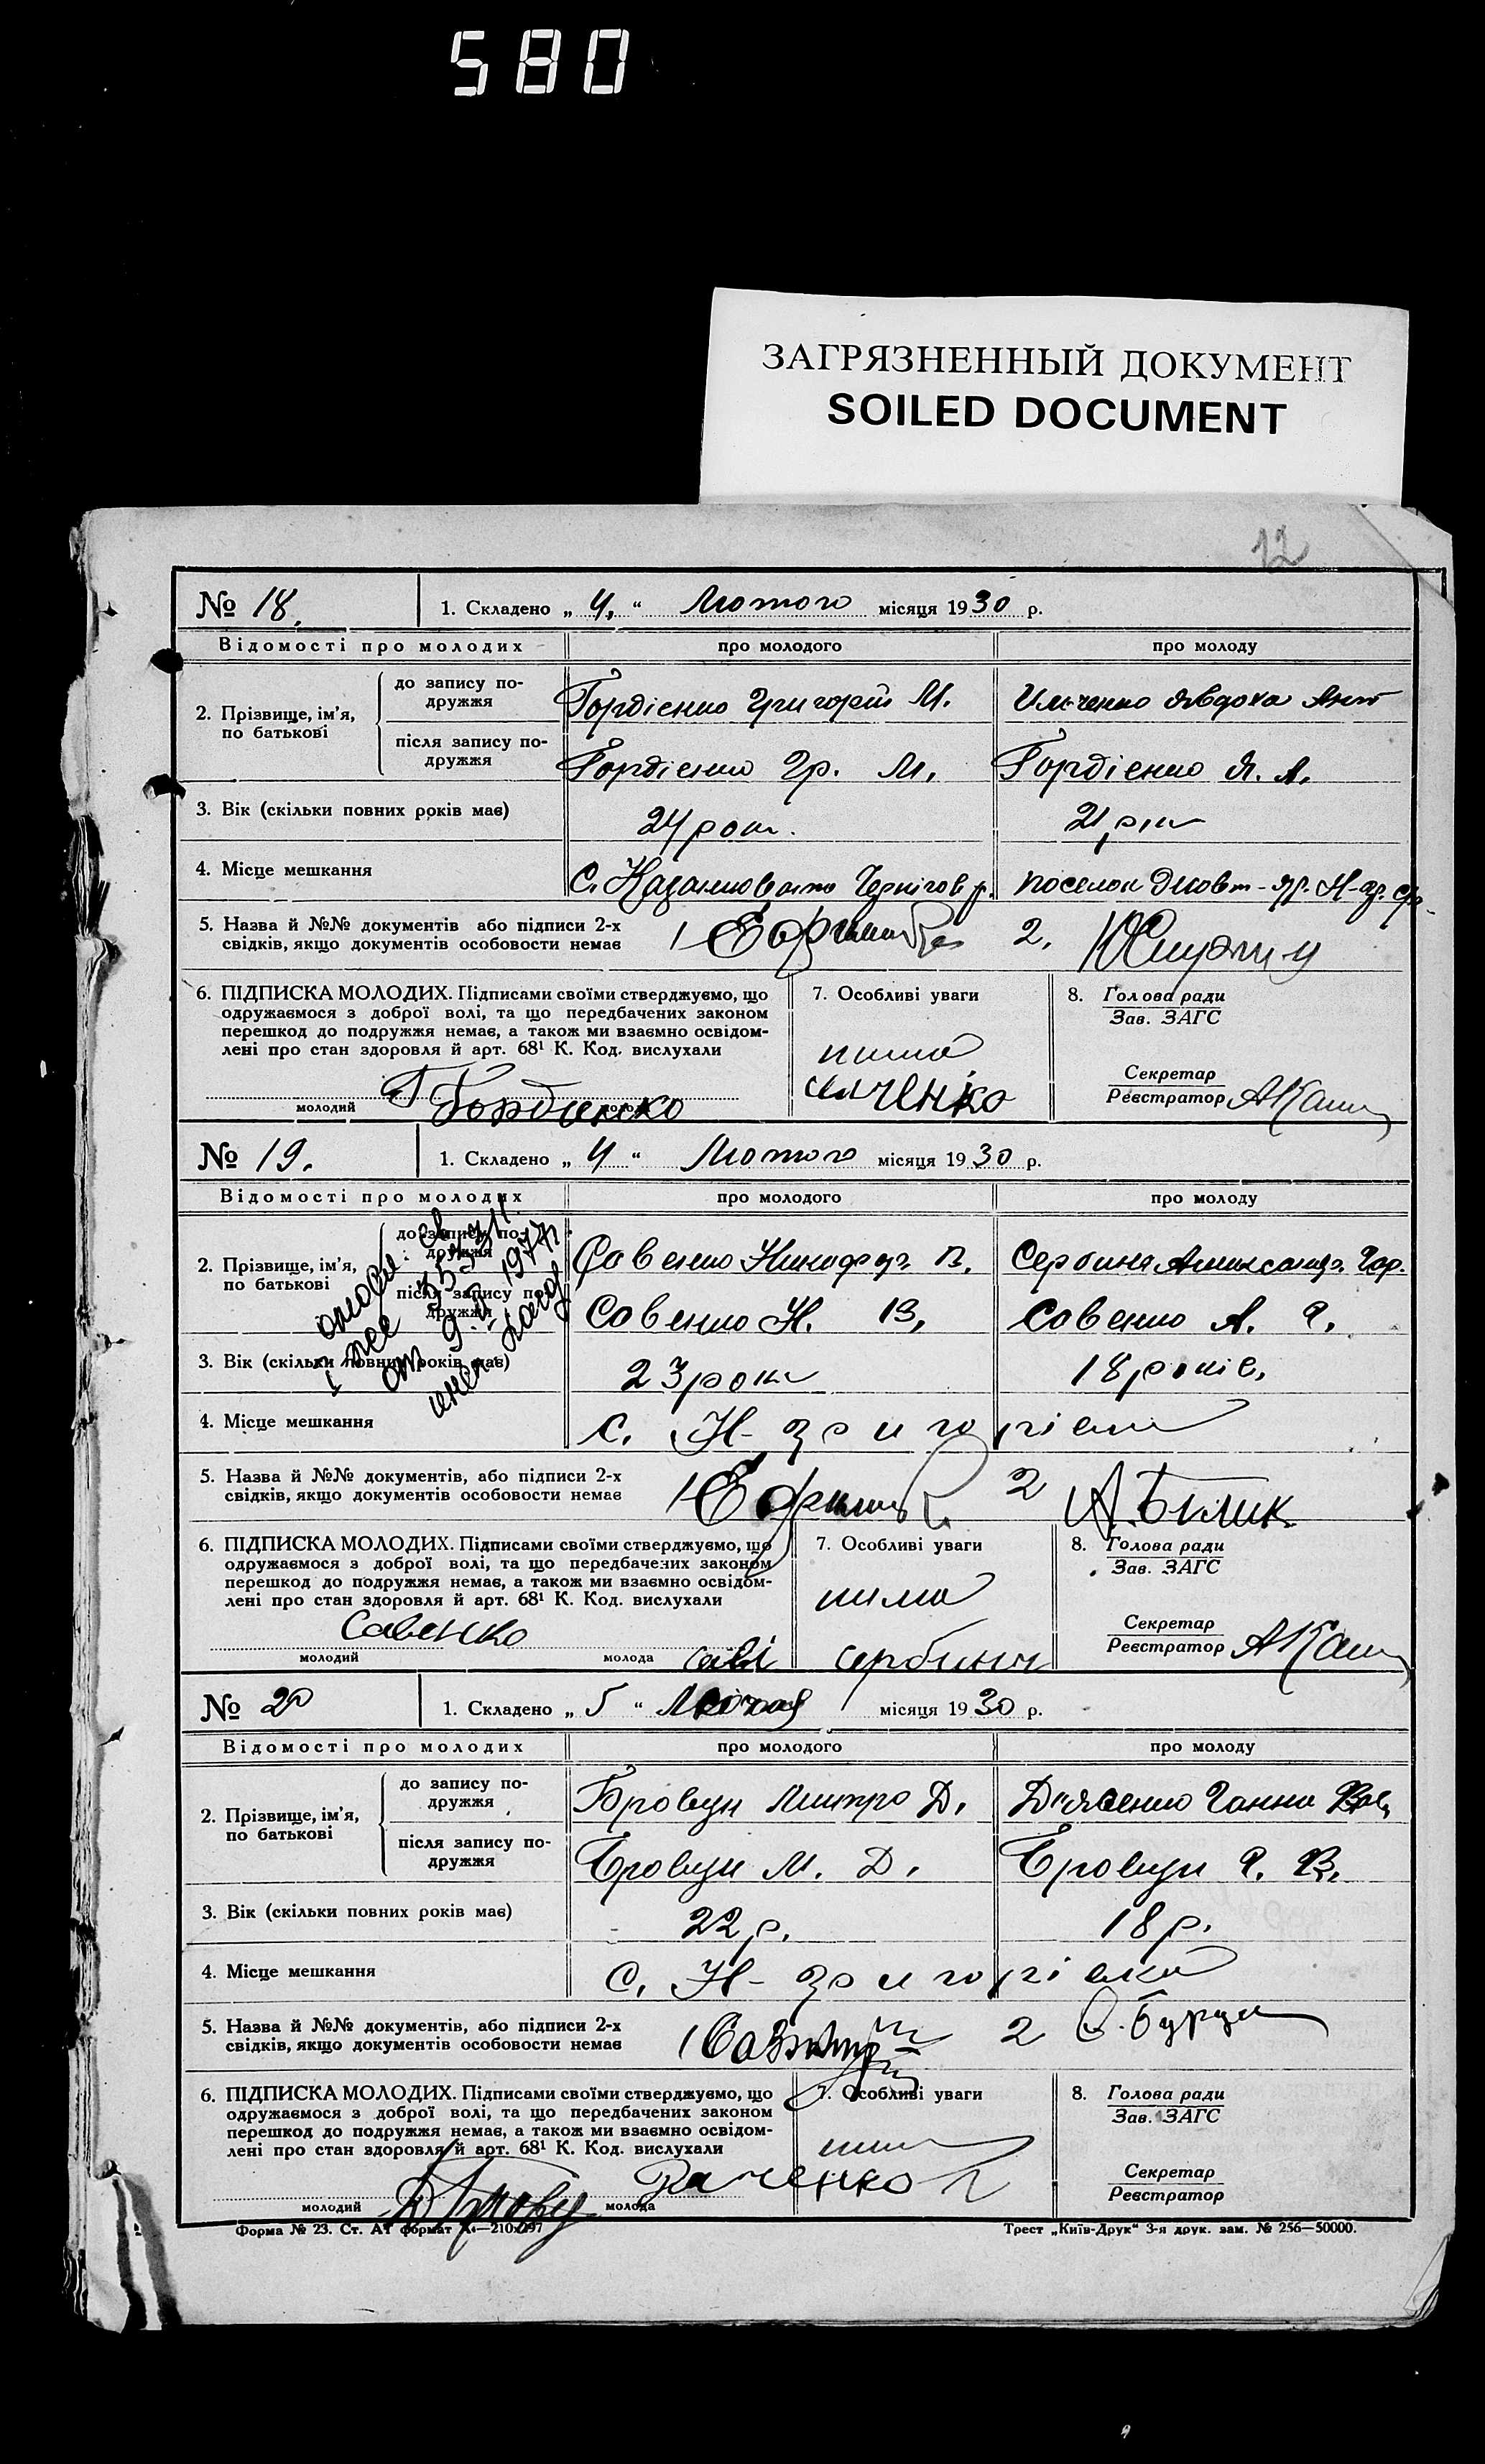 580
ЗАГРЯЗНЕННЫЙ ДОКУМЕНТ
SOILED DOCUMENT
12
№ 18. 1. Складено „ 4, “ Лютого місяця 1930 р.
Відомості про молодих про молодого про молоду
2. Прізвище, ім’я, по батькові
до запису по-
дружжя
Гордієнко Григорій М. Ильченко Явдоха Ант
після запису по-
дружжя
Гордієнко Гр. М. Гордієнко Я. А.
3. Вік (скільки повних років має) 24 роки. 21 рік
4. Місце мешкання С. Чернігов р. поселок Н-
5. Назва й №№ документів або підписи 2-х
свідків, якщо документів особовости немає 1 2.
6. ПІДПИСКА МОЛОДИХ. Підписами своїми стверджуємо, що
одружаємося з доброї волі, та що передбачених законом
перешкод до подружжя немає, а також ми взаємно освідом-
лені про стан здоровля й арт. 68¹ К. Код. вислухали
7. Особливі уваги
нима
8. Голова ради
Зав. ЗАГС
Секретар
Реєстратор
молодий Г Гордиенко илченко
№ 19. 1. Складено „ 4 “ Лютого місяця 1930 р.
Відомості про молодих про молодого про молоду
2. Прізвище, ім’я, по батькові
до запису по-
дружжя
Совенко Никифор В. Сербина Александ. Гор.
після запису по-
дружжя
Совенко Н. В. Совенко А. Г.
от 9. 1977
3. Вік (скільки повних років має) 23 роки 18 років.
4. Місце мешкання с. Н- григорівка
5. Назва й №№ документів, або підписи 2-х
свідків, якщо документів особовости немає 1 2 А. Билик
6. ПІДПИСКА МОЛОДИХ. Підписами своїми стверджуємо, що
одружаємося з доброї волі, та що передбачених законом
перешкод до подружжя немає, а також ми взаємно освідом-
лені про стан здоровля й арт. 68¹ К. Код. вислухали
7. Особливі уваги
нима
8. Голова ради
Зав. ЗАГС
Секретар
Реєстратор
Савенко
молодий молода сербини
№ 20 1. Складено „ 5 “ Лютого місяця 1930 р.
Відомості про молодих про молодого про молоду
2. Прізвище, ім’я, по батькові
до запису по-
дружжя
Бровун Митро Д. Ганна Вас.
після запису по-
дружжя
Бровун М. Д. Бровун Г. В.
3. Вік (скільки повних років має) 22 р. 18 р.
4. Місце мешкання С. Н- григорівка
5. Назва й №№ документів, або підписи 2-х
свідків, якщо документів особовости немає 1 2
6. ПІДПИСКА МОЛОДИХ. Підписами своїми стверджуємо, що
одружаємося з доброї волі, та що передбачених законом
перешкод до подружжя немає, а також ми взаємно освідом-
лені про стан здоровля й арт. 68¹ К. Код. вислухали
7. Особливі уваги
8. Голова ради
Зав. ЗАГС
Секретар
Реєстратор
молодий молода
Форма № 23. Ст. А1 формат А₄—210х297 Трест „Київ-Друк“ 3-я друк. зам. № 256—50000.